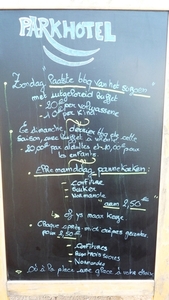 PARKHOTEL
Zondag laatste bbq van het seizoen
met uitgebreid buffet
- 20 € per volwassene
- 10 € per kind
Ce dimanche, dernier bbq de cette
saison, avec buffet
20,00€ par adultes et 10,00€ pour
les enfants
Elke namiddag pannenkoeken:
- confiture
- suiker
- normande
aan 2,50 €
of ijs naar keuze
Chaque après-midi crêpes
pour 2,50 €
- confitures
- Normandes
Où à la place une glace à votre choix